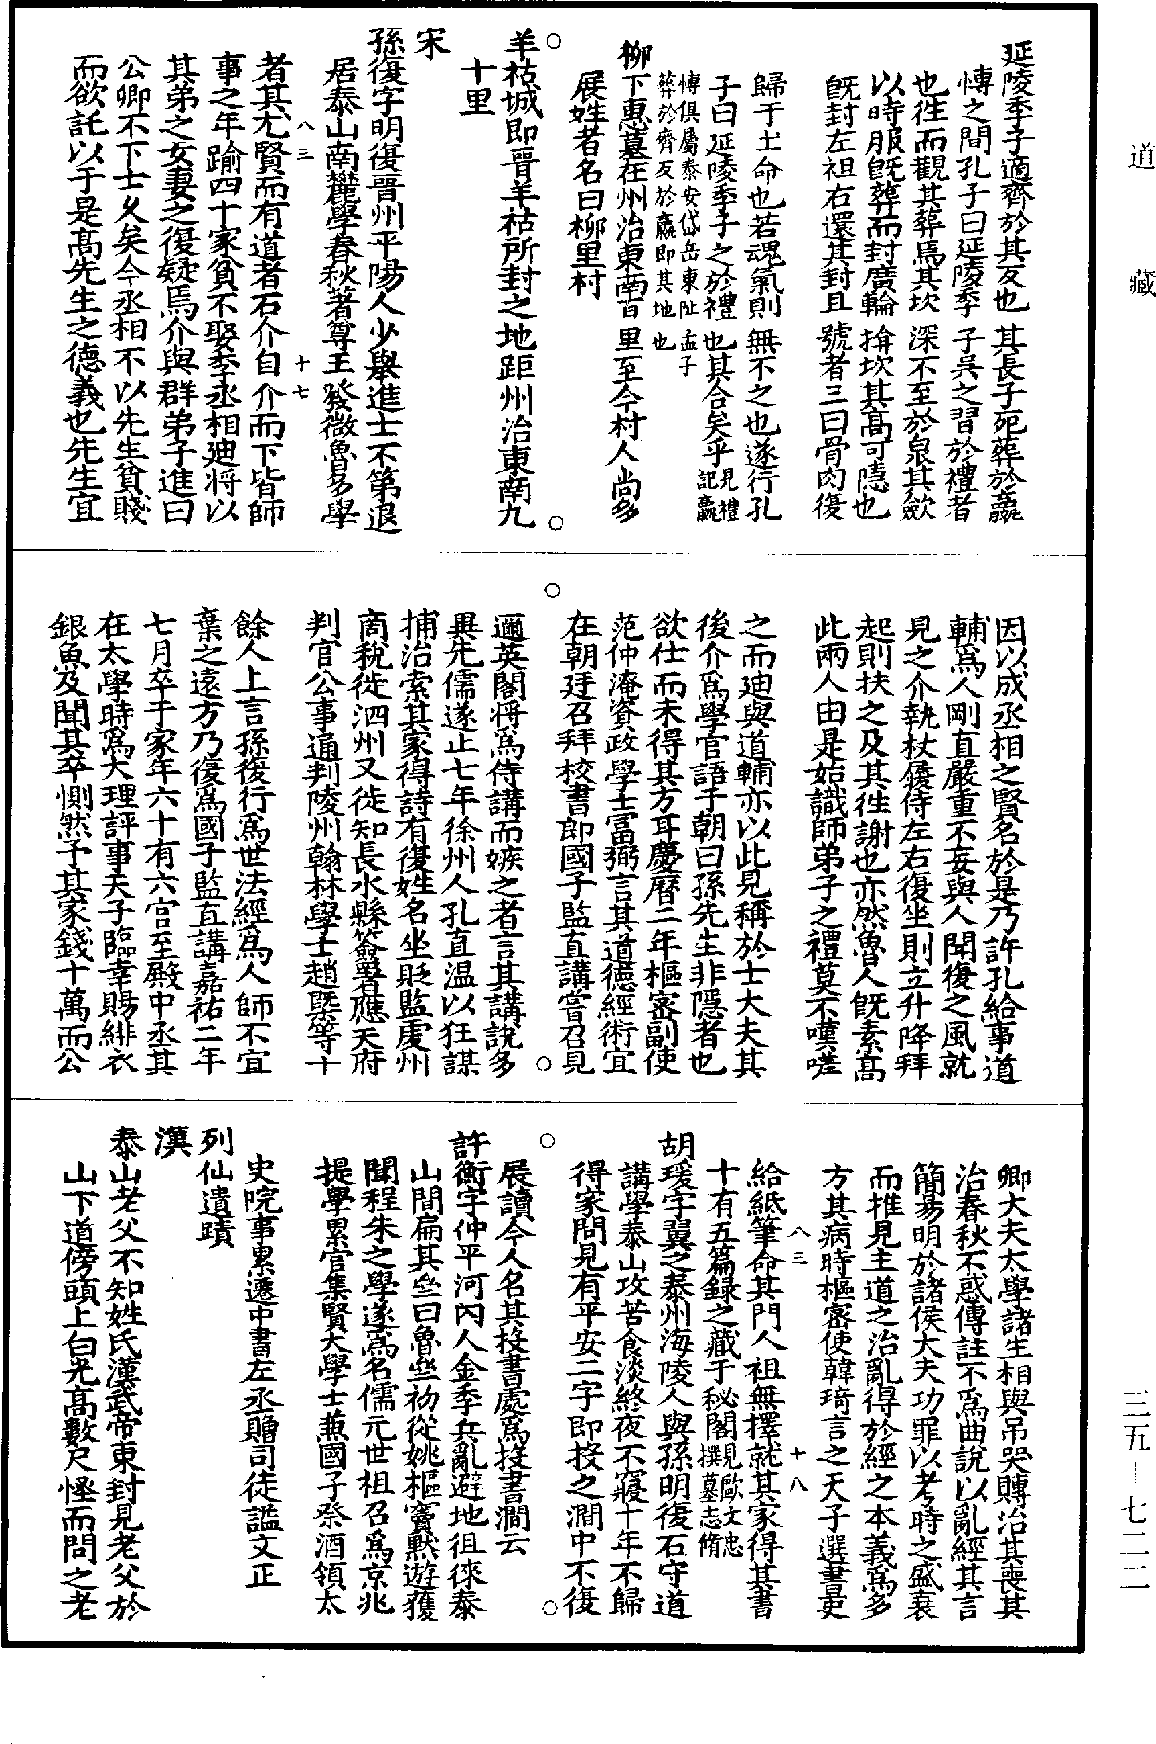 道藏
三五—七二二
延陵季子適齊於其反也其長子死葬於嬴
博之間孔子曰延陵季子吳之習於禮者
也往而觀其葬焉其坎深不至於泉其斂
以時服旣葬而封廣輪揜坎其高可隱也
旣封左袒右還其封且號者三曰骨肉復
歸于土命也若魂氣則無不之也遂行孔
子曰延陵季子之於禮也其合矣乎見禮記嬴
博俱屬泰安岱岳東趾孟子
葬於齊反於嬴即其地也
柳下惠墓在州治東南百里至今村人尚多
展姓者名曰柳里村
羊祜城即晉羊祜所封之地距州治東南九
十里
宋
孫復字明復晉州平陽人少舉進士不第退
居泰山南麓學春秋著尊王發微魯易學
者其尤賢而有道者石介自介而下皆師
事之年踰四十家貧不娶李丞相廸將以
其弟之女妻之復疑焉介與群弟子進曰
公卿不下士乆矣今丞相不以先生貧賤
而欲託以于是高先生之德義也先生宜
八三
十七
因以成丞相之賢名於是乃許孔給事道
輔爲人剛直嚴重不妄與人聞復之風就
見之介執杖屨侍左右復坐則立升降拜
起則扶之及其徃謝也亦然魯人旣素高
此兩人由是始識師弟子之禮莫不嘆嗟
之而廸與道輔亦以此見稱於士大夫其
後介爲學官語于朝曰孫先生非隱者也
欲仕而未得其方耳慶曆二年樞密副使
范仲淹資政學士富弼言其道德經術宜
在朝廷召拜校書郎國子監直講嘗召見
邇英閣將爲侍講而嫉之者言其講說多
異先儒遂止七年徐州人孔直温以狂謀
捕治索其家得詩有復姓名坐貶監處州
商稅徙泗州又徙知長水縣簽署應天府
判官公事通判陵州翰林學士趙槩等十
餘人上言孫復行爲世法經爲人師不宜
棄之遠方乃復爲國子監直講嘉祐二年
七月卒于家年六十有六官至殿中丞其
在太學時爲大理評事天子臨幸賜緋衣
銀魚及聞其卒惻然予其家錢十萬而公
卿大夫太學諸生相與吊哭賻治其喪其
治春秋不惑傳註不爲曲說以亂經其言
簡易明於諸侯大夫功罪以考時之盛衰
而推見主道之治亂得於經之本義爲多
方其病時樞密使韓琦言之天子選書吏
給紙筆命其門人祖無擇就其家得其書
十有五篇録之藏于秘閣見歐文忠脩撰墓志
八三
十八
胡瑗字翼之泰州海陵人與孫明復石守道
講學泰山攻苦食淡終夜不寢十年不歸
得家問見有平安二字即投之澗中不復
展讀今人名其投書處爲投書澗云
許衡字仲平河內人金季兵亂避地徂徠泰
山間扁其齋曰魯齋初從姚樞竇默遊獲
聞程朱之學遂爲名儒元世祖召爲京兆
提學累官集賢大學士兼國子祭酒領太
史院事累遷中書左丞贈司徒謚文正
列仙遺蹟
漢
泰山老父不知姓氏漢武帝東封見老父於
山下道傍頭上白光高數尺恠而問之老